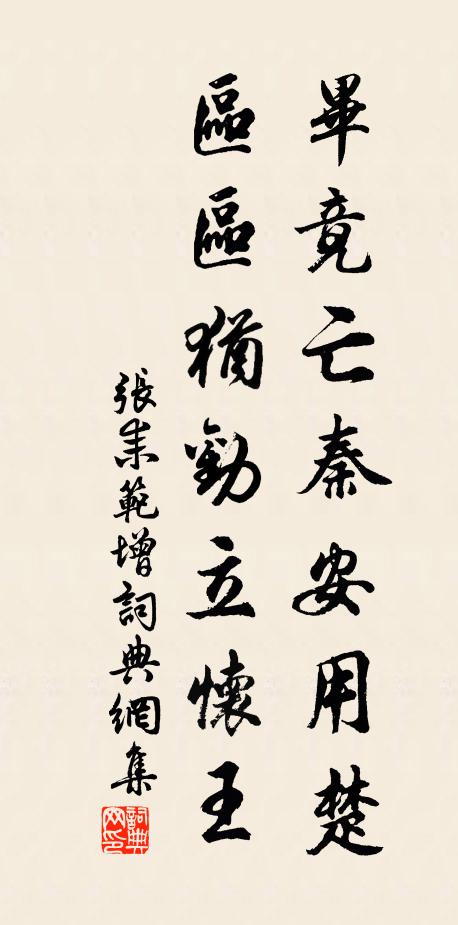 畢竟亡秦安用楚
區區猶勸立懷王
張耒範增詞典網集
詞典網印